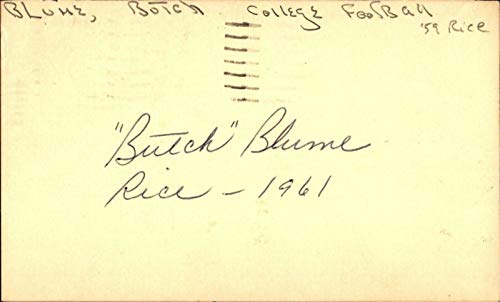 BLUME, BUTCH College Football
'59 Rice
"Butch" Blume
Rice - 1961